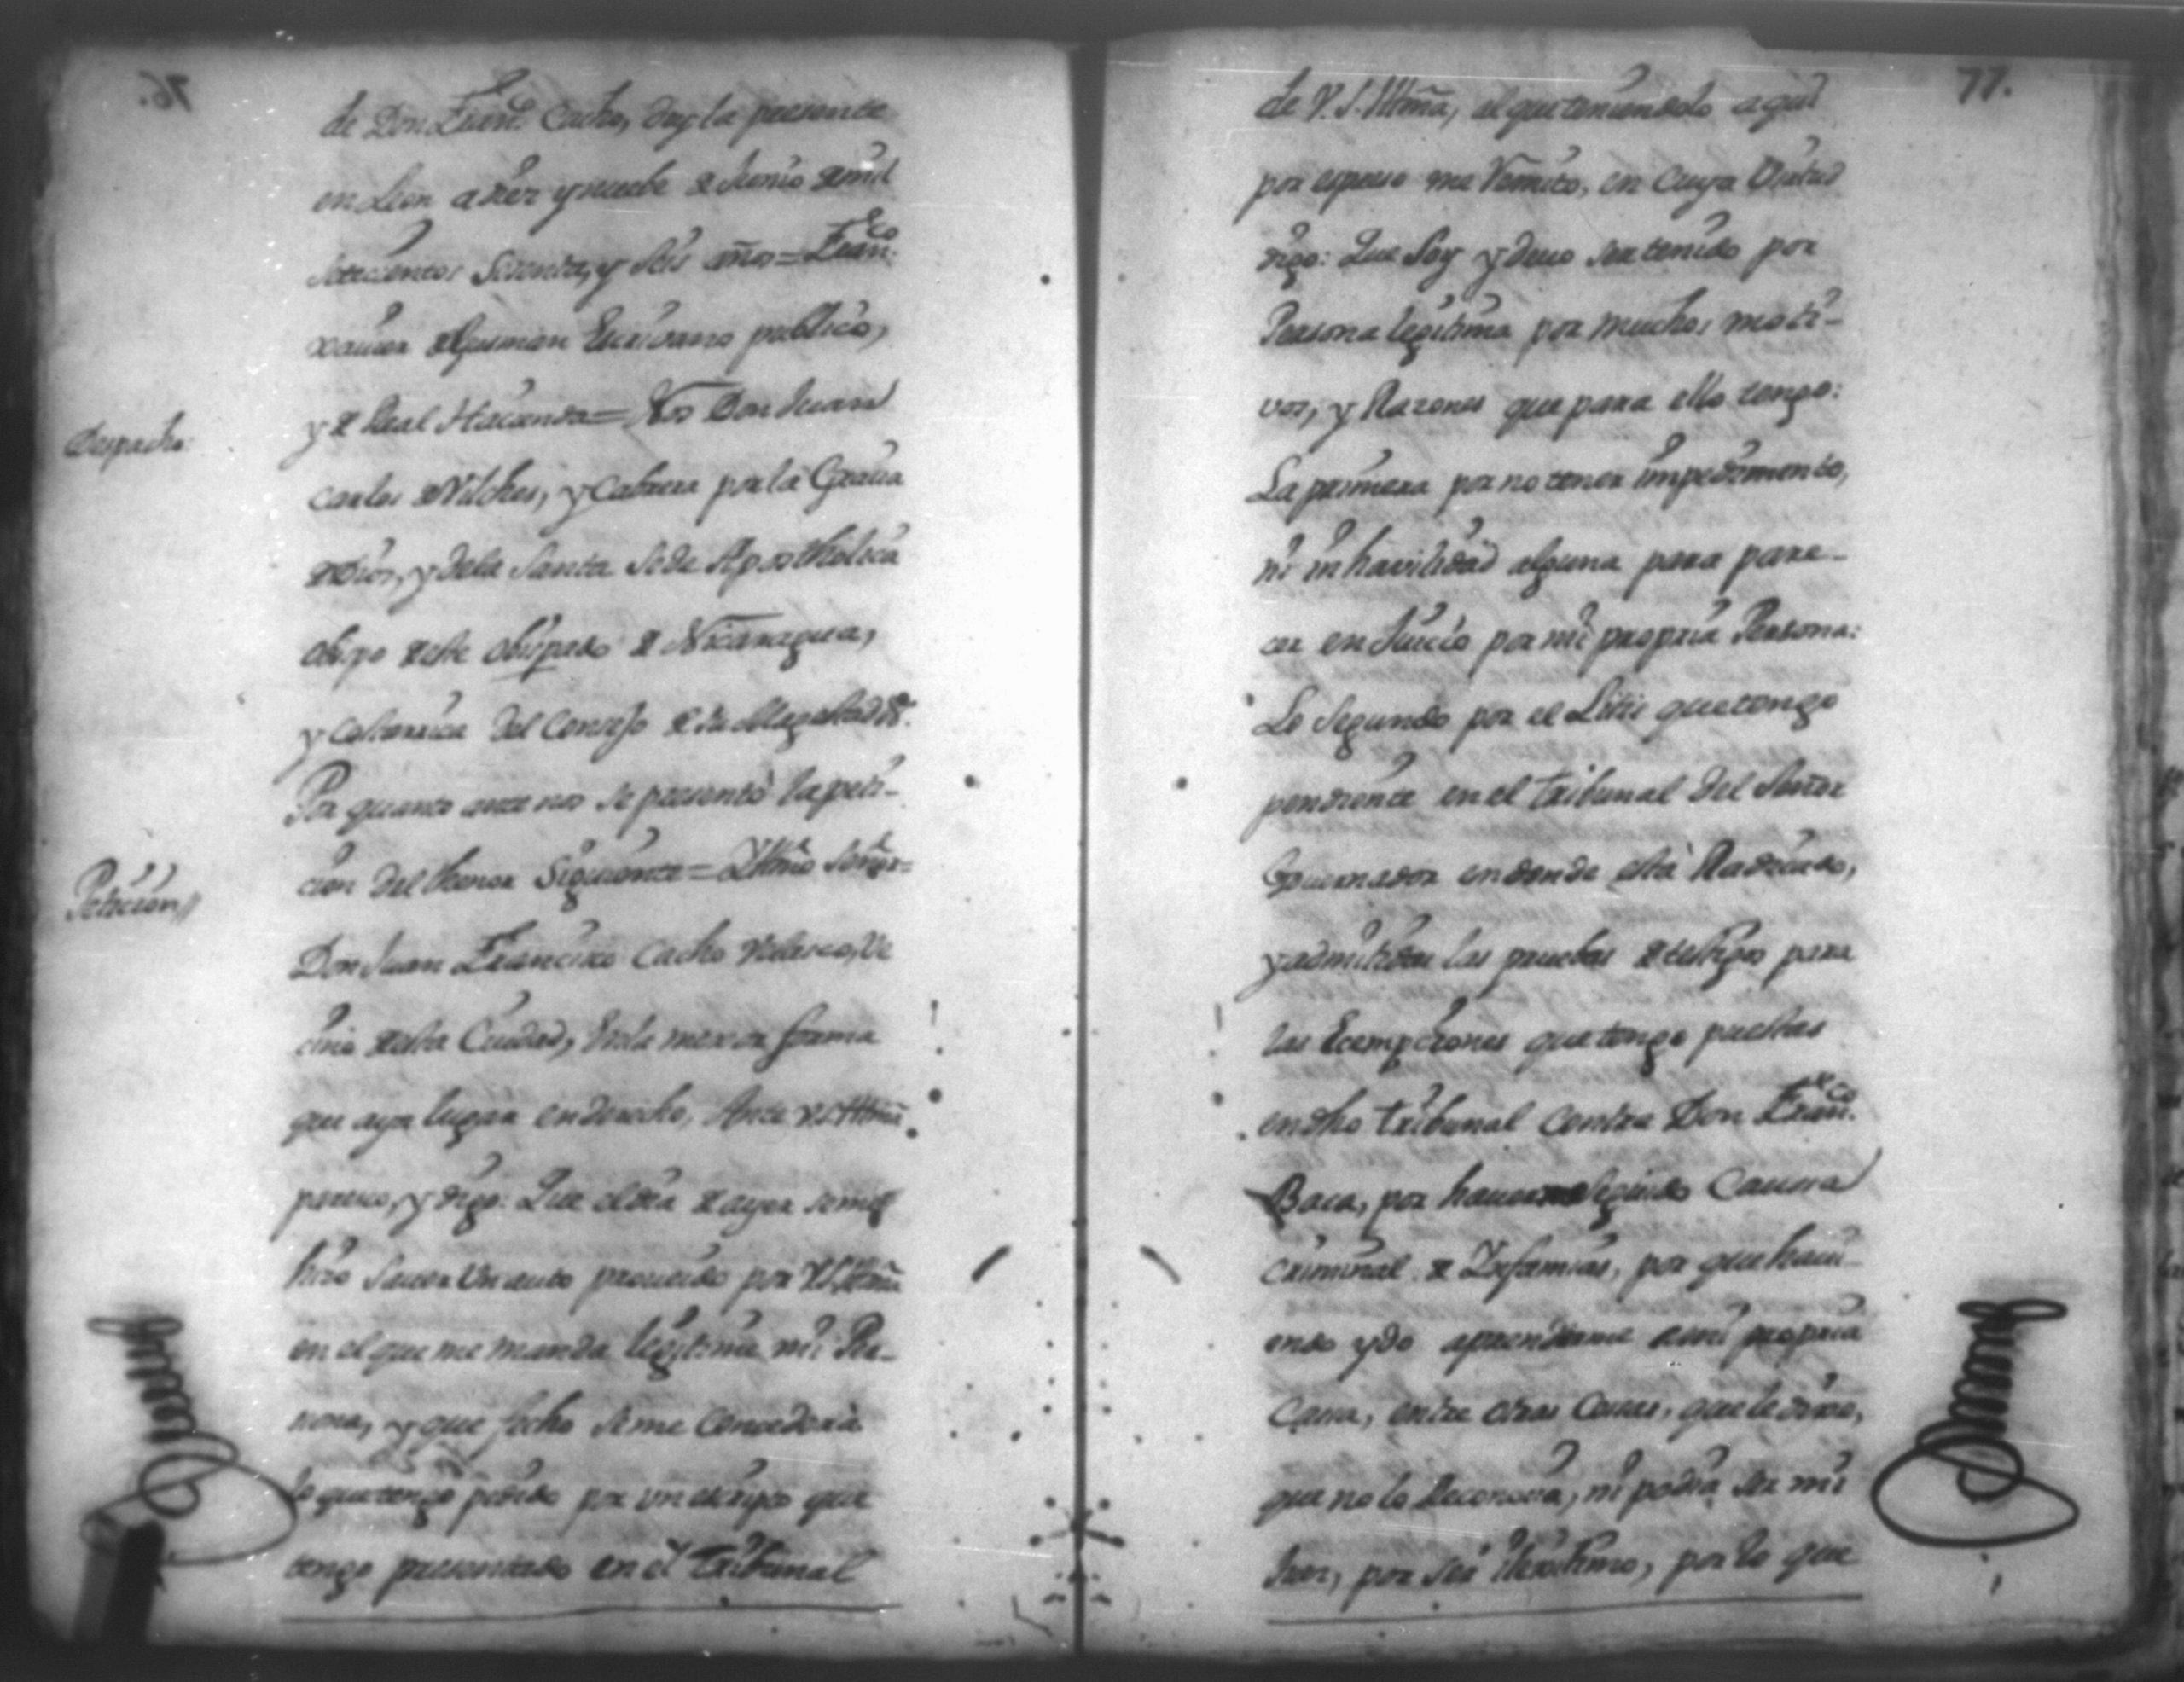 76.
de Don Fran.co Cacho, doy la presente
en Leon a diez y nuebe de Junio de mil
setecientos sesenta, y seis años = Fran.co
Xavier de Gusman Escrivano publico,
y de Real Hacienda = Nos Don Juan
Despacho.
Carlos de Vilches, y Cabrera por la Gracia
de Dios, y dela Santa Sede Apostholica
obispo de este obispado de Nicaragua,
y Costarrica del Consejo de su Magestad &.
Por quanto ante nos se presentò la peti-
cion del thenor siguiente = Illmô Señor =
Peticion//
Don Juan Francisco Cacho Velasco, Ve
cino de esta Ciudad, en la mexor forma
que aya lugar en derecho, Ante V.S. Illmã
paresco, y digo: Que el dia de ayer se me
hizo saver Un auto proveido por V.S. Illmã
en el que me manda legitime mi Per-
sona, y que fecho se me concederà
lo que tengo pedido por un escripto que
tengo presentado en el tribunal
77.
de V.S. Illmã, el que teniendolo aqui
por expreso me Remito, en cuya Virtud
digo: Que Soy y devo ser tenido por
Persona legitima por muchos moti-
vos, y Razones que para ello tengo:
La primera por no tener impedimento,
ni inhavilidad alguna para pare-
cer en Juicio por mi propria Persona:
Lo Segundo por el Litis que tengo
pendiente en el tribunal del Señor
Governador en donde està Radicado,
y admitidas las pruebas de testigos para
las Ecempciones que tengo puestas
en dho tribunal contra Don Fran.co
Baca, por haverme seguido Causa
criminal de Infamias, por que havi-
endo ydo aprenderme a mi propria
Casa, entre otras cosas, que le dixe,
que no lo Reconocia, ni podia ser mi
Juez, por ser Ilexitimo, por lo que